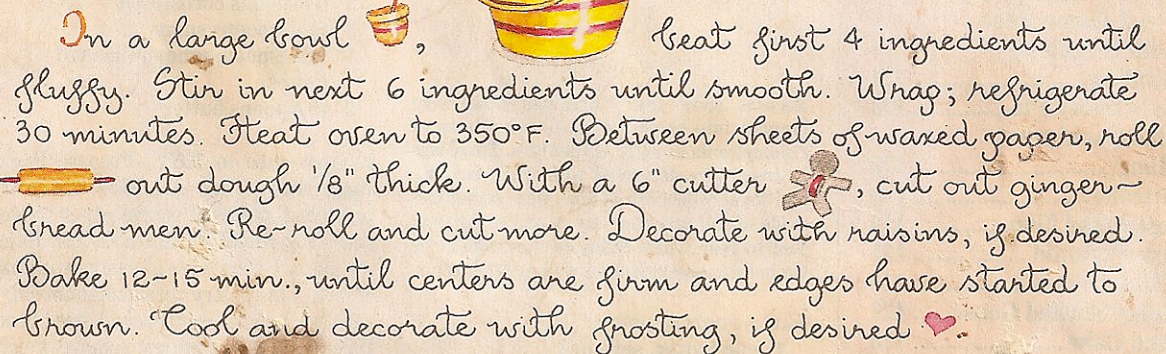 In a large bowl , beat first 4 ingredients until
fluffy. Stir in next 6 ingredients until smooth. Wrap; refrigerate
30 minutes. Heat oven to 350°F. Between sheets of waxed paper, roll
out dough 1/8" thick. With a 6" cutter , cut out ginger~
bread men. Re~roll and cut more. Decorate with raisins, if desired.
Bake 12~15 min., until centers are firm and edges have started to
brown. Cool and decorate with frosting, if desired .